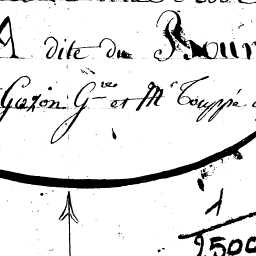 A dite du Bour
Gazon G^ves et M^r Touppié
1
2500